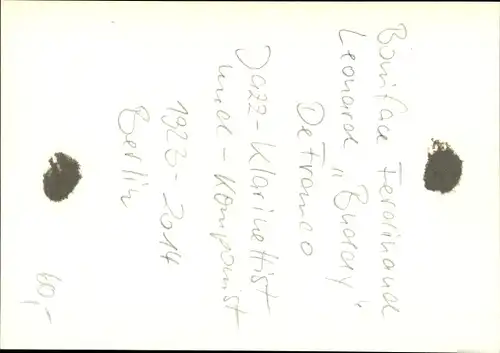 Boniface Ferdinand
Leonard „Buddy"
DeFranco
Jazz-Klarinettist
und - Komponist
1923-2014
Berlin
60,-